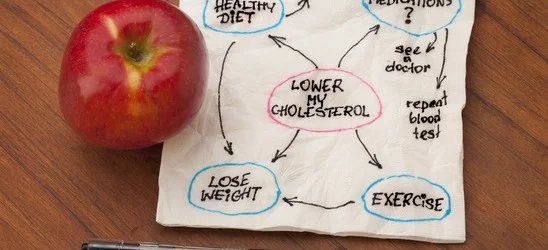 HEALTHY
DIET
MEDICATIONS
?
see
a
doctor
LOWER
MY
CHOLESTEROL
repeat
blood
test
LOSE
WEIGHT
EXERCISE